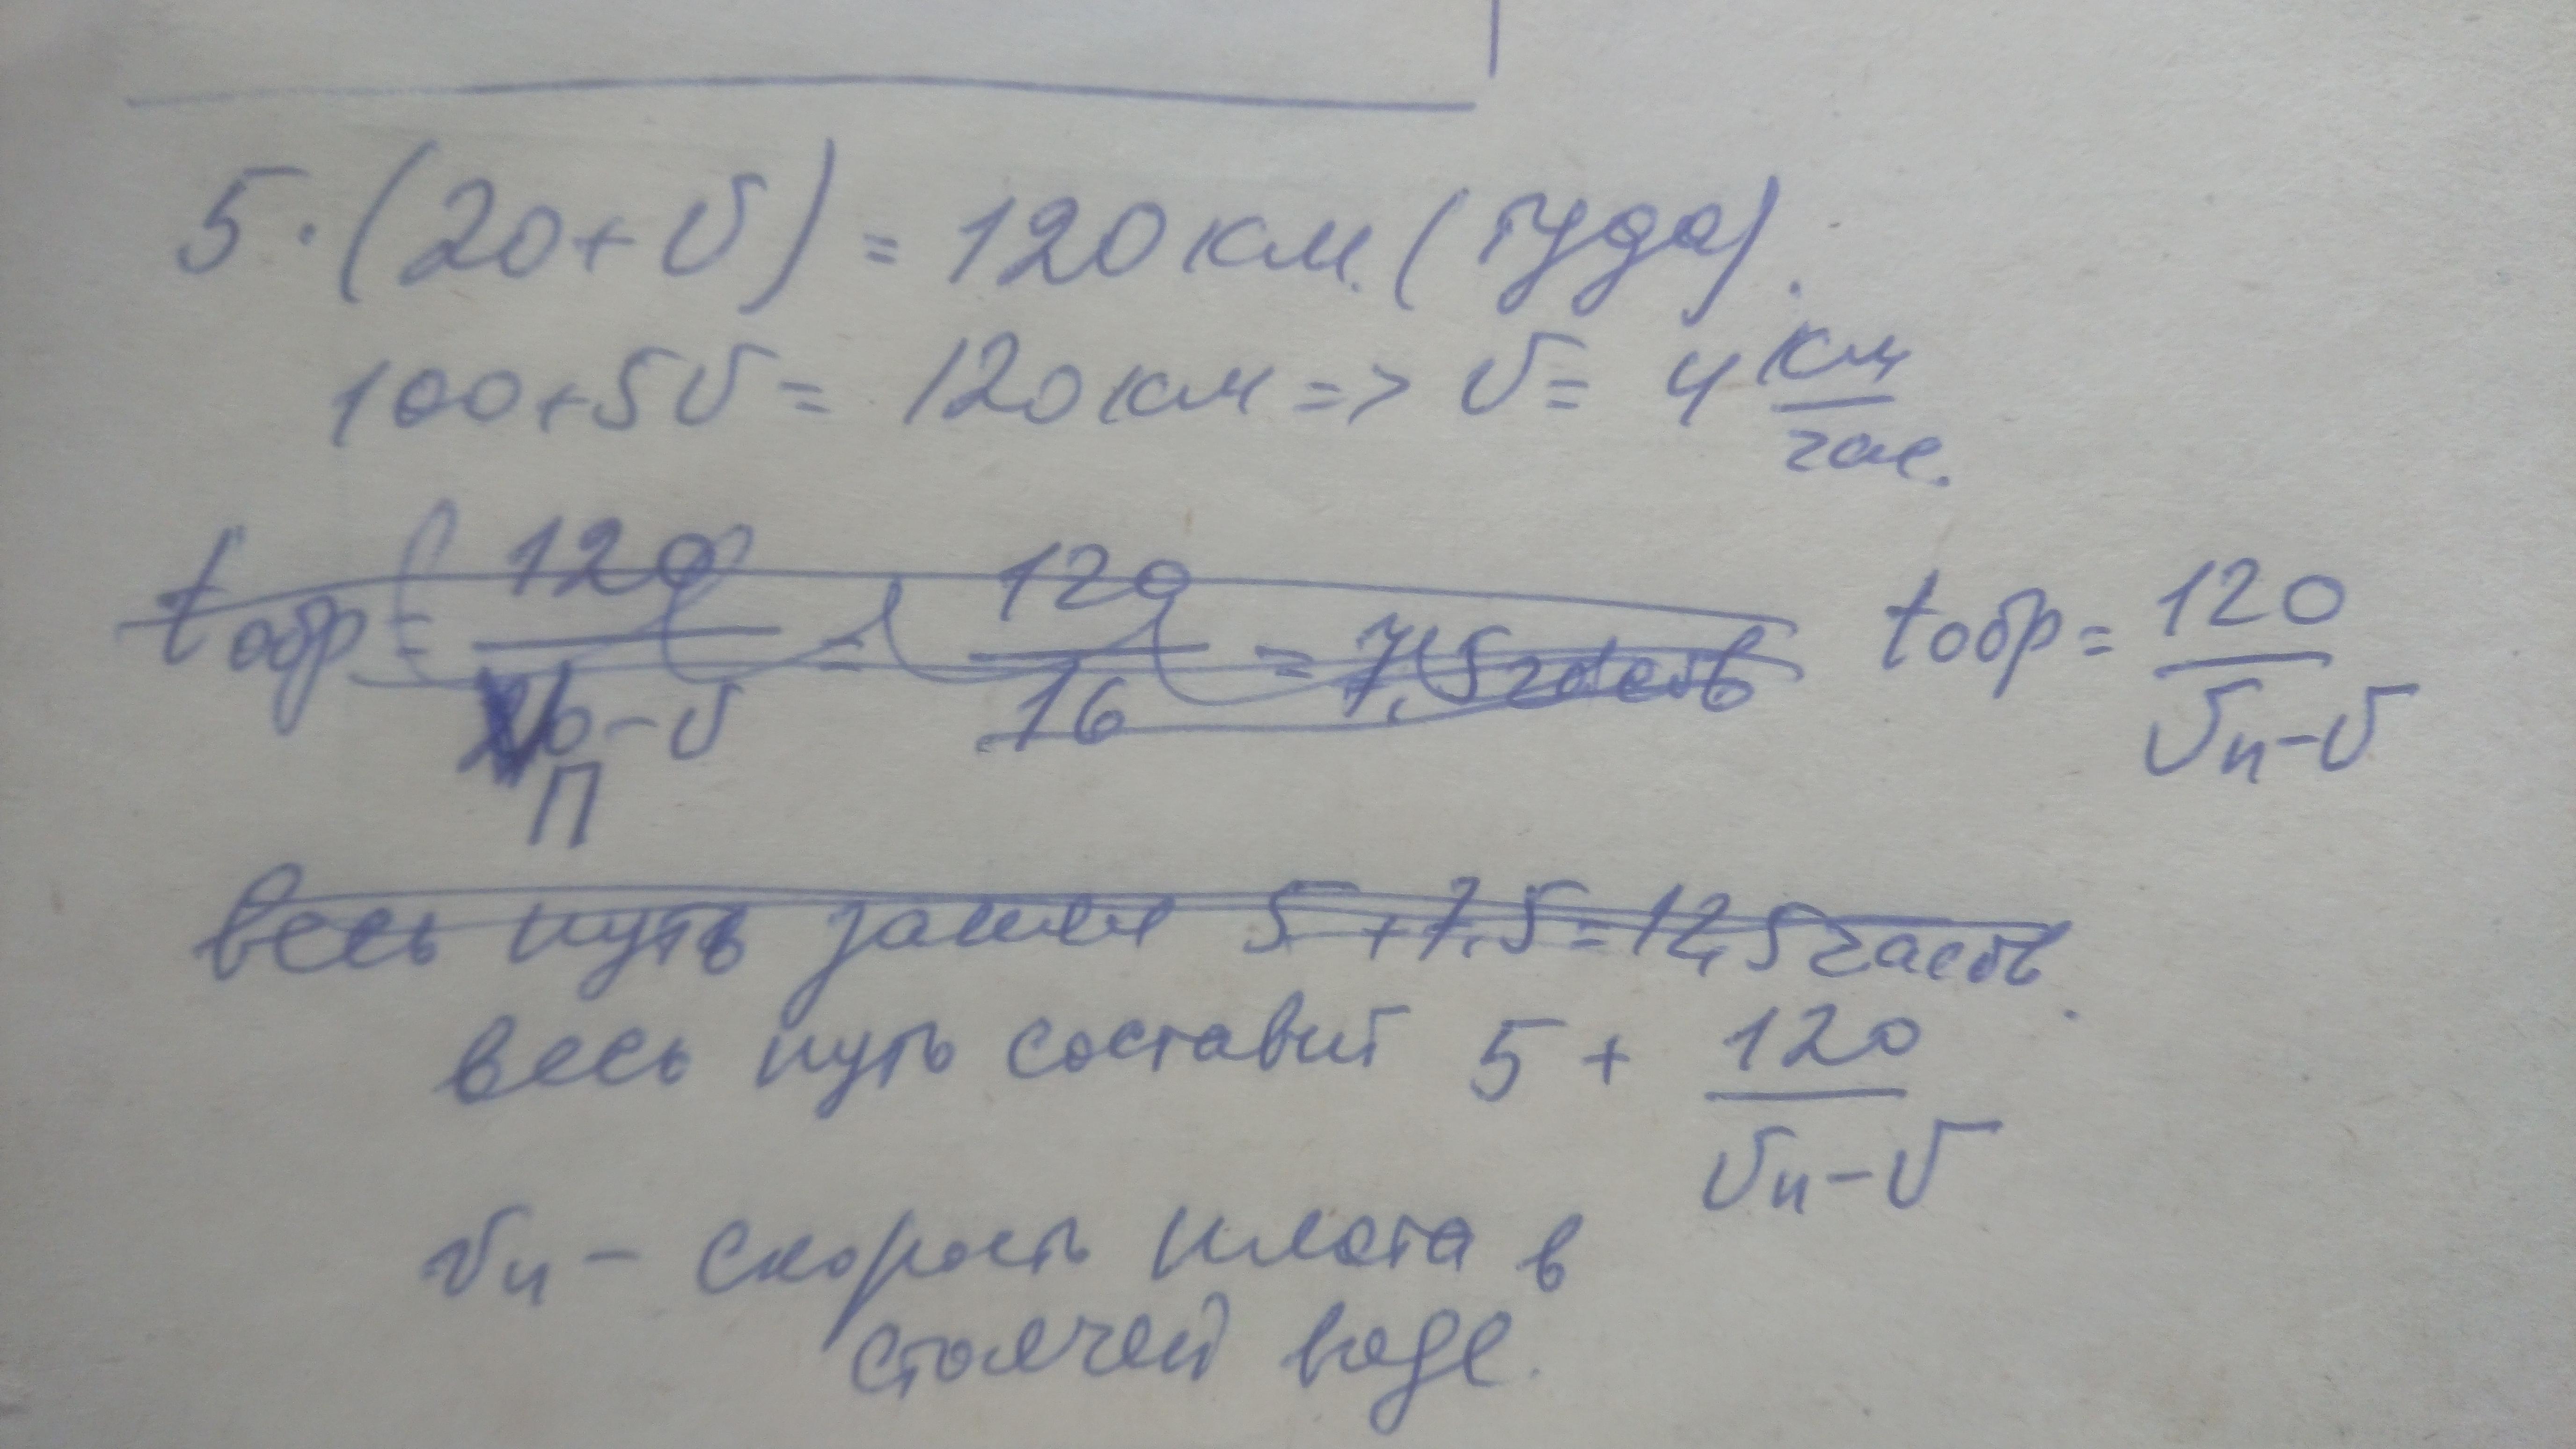 5·(20+v) = 120 км. (туда).
100+5v = 120 км => v = 4 км/час.
tобр = 120/(vп-v) = 120/16 = 7,5 часов
tобр = 120/(vп-v)
весь путь занял 5+7,5=12,5 часов.
весь путь составит 5 + 120/(vп-v)
vп – скорость плота в
стоячей воде.